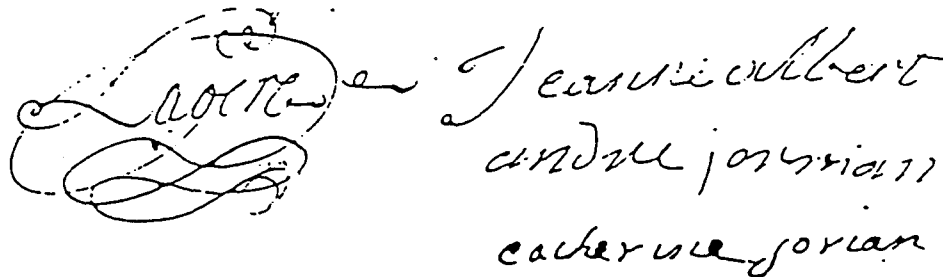 Jeanne allbert
andre jourian
catherine jorian